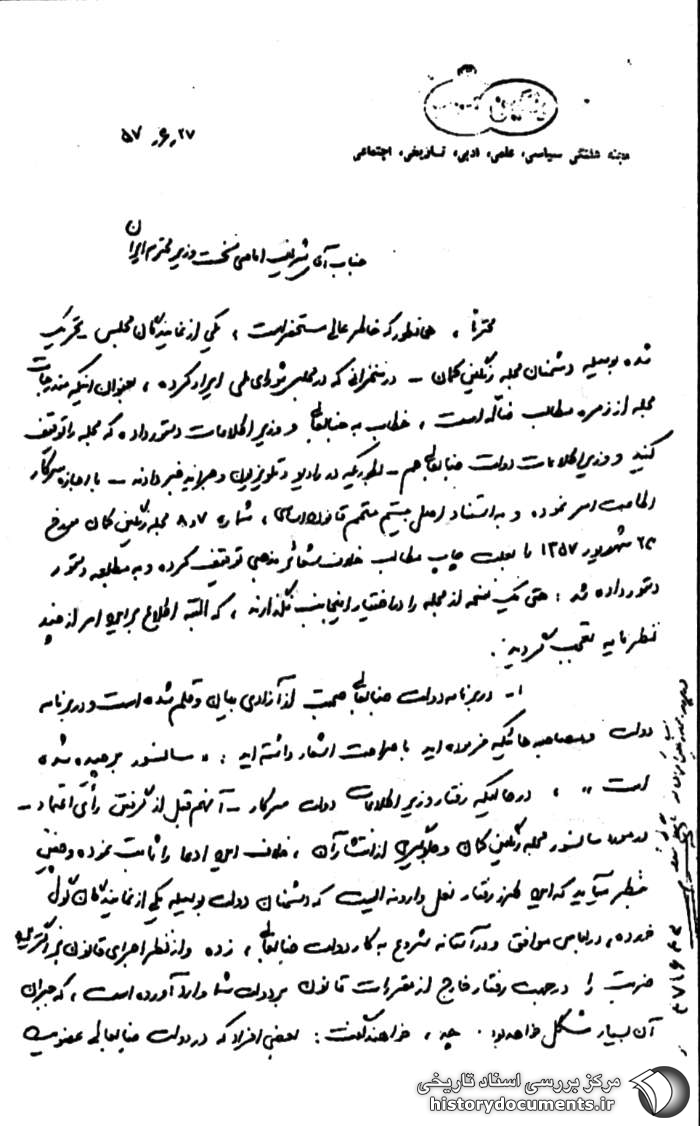 رنگین کمان
مجله هفتگی سیاسی، علمی، ادبی، تاریخی، اجتماعی
۵۷٫۶٫۲۷
جناب آقای شریف امامی نخست وزیر محترم ایران
محترماً، همانطور که خاطر عالی مستحضر است، یکی از نمایندگان مجلس بتحریک
شده بوسیله دشمنان مجله رنگین کمان - در سخنرانی که در مجلس شورای ملی ایراد کرده، بعنوان اینکه مندرجات
مجله از زمره مطالب ضاله است، خطاب به جنابعالی و وزیر اطلاعات دستور داده که مجله را توقیف
کنید و وزیر اطلاعات دولت جنابعالی هم - بطوریکه در رادیو و تلویزیون و جراید خبر دادند - با اجازه سرکار
اطاعت امر نموده و به استناد اصل بیستم متمم قانون اساسی، شماره ۷و۸ مجله رنگین کمان مورخ
شهریور ۱۳۵۷ را بعلت چاپ مطالب خلاف شعائر مذهبی توقیف کرده و به مطبعه دستور
دستور داده شد: حتی یک نسخه از مجله را در اختیار اینجانب نگذارند، که البته اطلاع بر این امر از چند
نظر مایه تعجب گردید.
۱- در برنامه دولت جنابعالی صحبت از آزادی بیان و قلم شده است و در برنامه
دولت و مصاحبه هائیکه فرموده اید با صراحت اشعار داشته اید: «سانسور برچیده شده
است»، در حالیکه رفتار وزیر اطلاعات دولت سرکار - آنهم قبل از گرفتن رأی اعتماد -
در مورد سانسور مجله رنگین کمان و جلوگیری از انتشار آن، خلاف این ادعا را ثابت نموده و چنین
بنظر میآید که این طرز رفتار نعل وارونه ایست که دشمنان دولت بوسیله یکی از نمایندگان گول
خورده، در لباس موافق و در آستانه شروع به کار دولت جنابعالی، زده و از نظر اجرای قانون بزرگترین
ضربت را در جهت رفتار خارج از مقررات قانون بر دولت شما وارد آورده است، که جبران
آن بسیار مشکل خواهد بود. چه، خواهند گفت: بعضی افراد که در دولت جنابعالی عضویت
مرکز بررسی اسناد تاریخی
historydocuments.ir